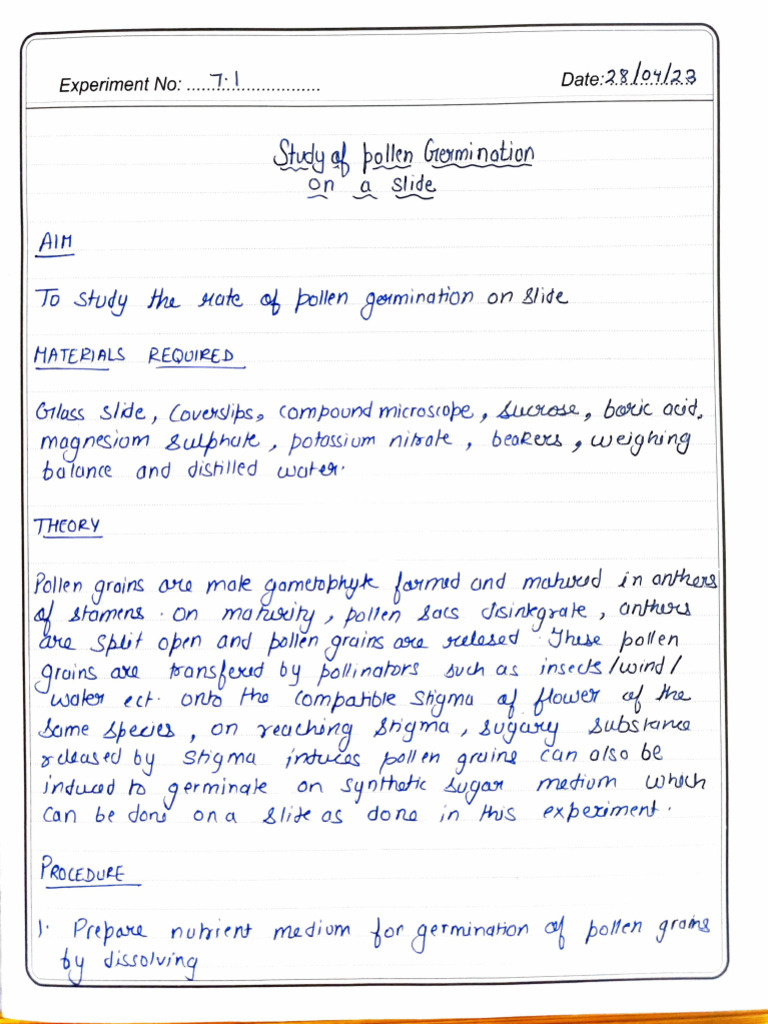 Experiment No: ....7.1....
Date: 28/04/23
Study of pollen Germination
on a slide
AIM
To study the rate of pollen germination on slide
MATERIALS REQUIRED
Glass slide, Coverslips, compound microscope, sucrose, boric acid,
magnesium sulphate, potassium nitrate, beakers, weighing
balance and distilled water.
THEORY
Pollen grains are male gametophyte formed and matured in anthers
of stamens. On maturity, pollen sacs disintegrate, anthers
are split open and pollen grains are relesed. These pollen
grains are transfered by pollinators such as insects/wind/
water ect. onto the compatible stigma of flower of the
same species, on reaching stigma, sugary substance
released by stigma induces pollen grains can also be
induced to germinate on synthetic sugar medium which
can be done on a slide as done in this experiment.
PROCEDURE
1. Prepare nutrient medium for germination of pollen grains
by dissolving